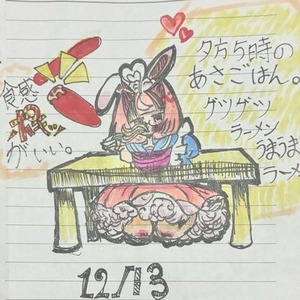 夕方5時の
あさごはん。
グツグツ
ラーメン
うまうま
ラーメ
食感
ポキッ
がいい。
12/13